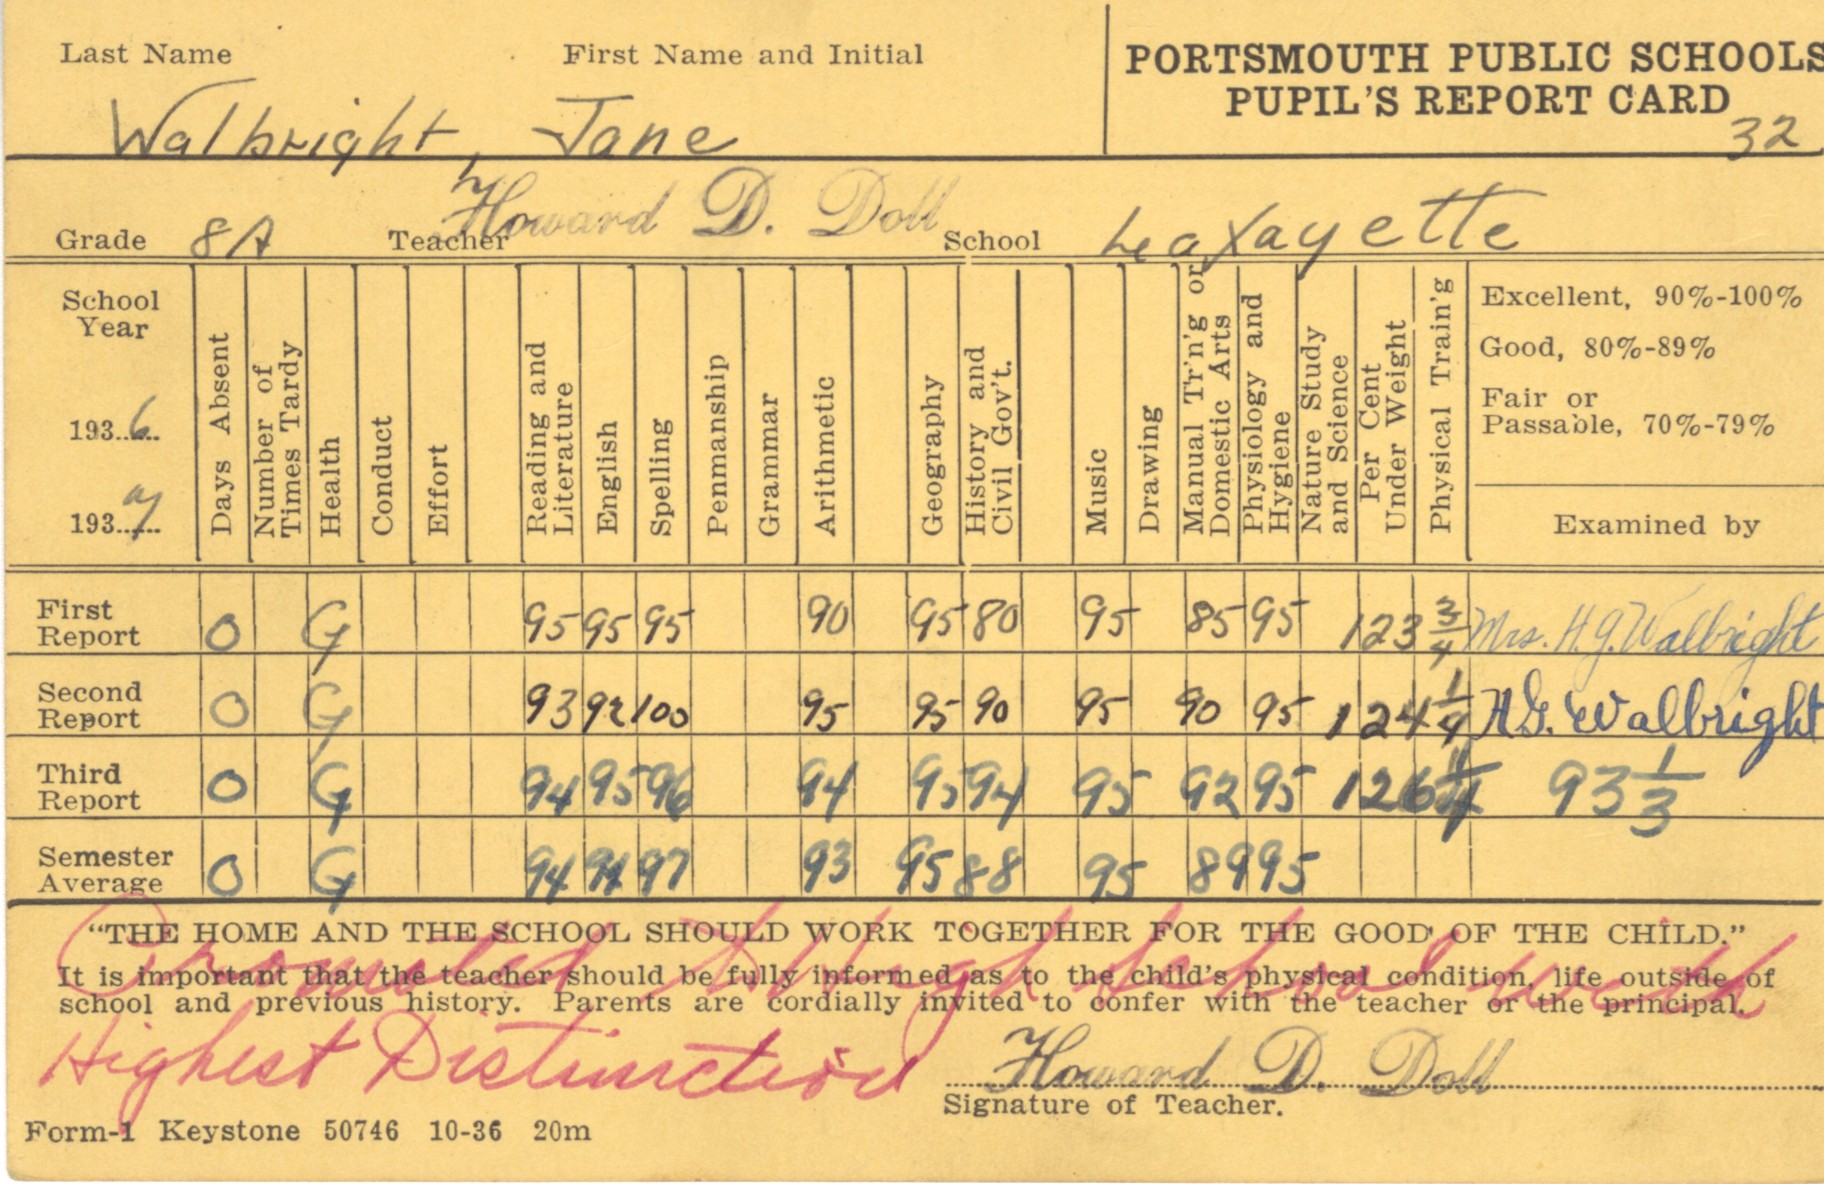 Last Name First Name and Initial
Walbright, Jane
PORTSMOUTH PUBLIC SCHOOLS
PUPIL'S REPORT CARD
32
Grade 8A Teacher Howard D. Doll School Lafayette
School Year
1936
1937
Days Absent
Number of Times Tardy
Health
Conduct
Effort
Reading and Literature
English
Spelling
Penmanship
Grammar
Arithmetic
Geography
History and Civil Gov't.
Music
Drawing
Manual Tr'n'g or Domestic Arts
Physiology and Hygiene
Nature Study and Science
Per Cent Under Weight
Physical Train'g
Excellent, 90%-100%
Good, 80%-89%
Fair or
Passable, 70%-79%
Examined by
First Report 0 G 95 95 95 90 95 80 95 85 95 123 3/4 Mrs. H. G. Walbright
Second Report 0 G 93 92 100 95 95 90 95 90 95 124 1/4 H.G. Walbright
Third Report 0 G 94 95 96 94 95 94 95 92 95 126 1/4 93 1/3
Semester Average 0 G 94 94 97 93 95 88 95 89 95
"THE HOME AND THE SCHOOL SHOULD WORK TOGETHER FOR THE GOOD OF THE CHILD."
Promoted to High School with
It is important that the teacher should be fully informed as to the child's physical condition, life outside of
school and previous history. Parents are cordially invited to confer with the teacher or the principal.
Highest Distinction
Howard D. Doll
Signature of Teacher.
Form-1 Keystone 50746 10-36 20m